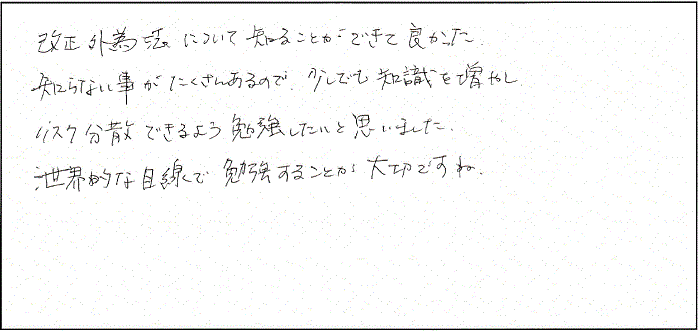 改正外為法について知ることができて良かった.
知らない事がたくさんあるので、少しでも知識を増やし
リスク分散できるよう勉強したいと思いました.
世界的な目線で勉強することが大切ですね.